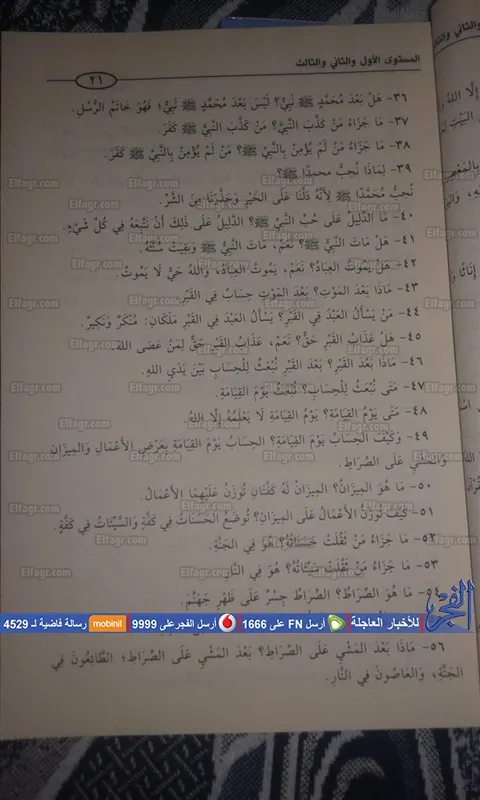 المستوى الأول والثاني والثالث
٢١
٣٦- هَلْ بَعْدَ مُحَمَّدٍ ﷺ نَبِيٌّ؟ لَيْسَ بَعْدَ مُحَمَّدٍ ﷺ نَبِيٌّ؛ فَهُوَ خَاتَمُ الرُّسُلِ.
٣٧- مَا جَزَاءُ مَنْ كَذَّبَ النَّبِيَّ؟ مَنْ كَذَّبَ النَّبِيَّ ﷺ كَفَرَ.
٣٨- مَا جَزَاءُ مَنْ لَمْ يُؤْمِنْ بِالنَّبِيِّ ﷺ؟ مَنْ لَمْ يُؤْمِنْ بِالنَّبِيِّ ﷺ كَفَرَ.
٣٩- لِمَاذَا نُحِبُّ محمدًا ﷺ؟
نُحِبُّ مُحَمَّدًا ﷺ لِأَنَّهُ دَلَّنَا عَلَى الْخَيْرِ وَحَذَّرَنَا مِنَ الشَّرِّ.
٤٠- مَا الدَّلِيلُ عَلَى حُبِّ النَّبِيِّ ﷺ؟ الدَّلِيلُ عَلَى ذَلِكَ أَنْ نَتَّبِعَهُ فِي كُلِّ شَيْءٍ.
٤١- هَلْ مَاتَ النَّبِيُّ ﷺ؟ نَعَمْ، مَاتَ النَّبِيُّ ﷺ وَبَقِيَتْ سُنَّتُهُ.
٤٢- هَلْ يَمُوتُ الْعِبَادُ؟ نَعَمْ، يَمُوتُ الْعِبَادُ، وَاللهُ حَيٌّ لَا يَمُوتُ.
٤٣- مَاذَا بَعْدَ الْمَوْتِ؟ بَعْدَ الْمَوْتِ حِسَابٌ فِي الْقَبْرِ.
٤٤- مَنْ يَسْأَلُ الْعَبْدَ فِي الْقَبْرِ؟ يَسْأَلُ الْعَبْدَ فِي الْقَبْرِ مَلَكَانِ: مُنْكَرٌ وَنَكِيرٌ.
٤٥- هَلْ عَذَابُ الْقَبْرِ حَقٌّ؟ نَعَمْ، عَذَابُ الْقَبْرِ حَقٌّ لِمَنْ عَصَى اللهَ.
٤٦- مَاذَا بَعْدَ الْقَبْرِ؟ بَعْدَ الْقَبْرِ نُبْعَثُ لِلْحِسَابِ بَيْنَ يَدَيِ اللهِ.
٤٧- مَتَى نُبْعَثُ لِلْحِسَابِ؟ نُبْعَثُ يَوْمَ الْقِيَامَةِ.
٤٨- مَتَى يَوْمُ الْقِيَامَةِ؟ يَوْمُ الْقِيَامَةِ لَا يَعْلَمُهُ إِلَّا اللهُ.
٤٩- وَكَيْفَ الْحِسَابُ يَوْمَ الْقِيَامَةِ؟ الْحِسَابُ يَوْمَ الْقِيَامَةِ بِعَرْضِ الْأَعْمَالِ وَالْمِيزَانِ
وَالْمَشْيِ عَلَى الصِّرَاطِ.
٥٠- مَا هُوَ الْمِيزَانُ؟ الْمِيزَانُ لَهُ كَفَّتَانِ تُوزَنُ عَلَيْهِمَا الْأَعْمَالُ.
٥١- كَيْفَ تُوزَنُ الْأَعْمَالُ عَلَى الْمِيزَانِ؟ تُوضَعُ الْحَسَنَاتُ فِي كَفَّةٍ وَالسَّيِّئَاتُ فِي كَفَّةٍ.
٥٢- مَا جَزَاءُ مَنْ ثَقُلَتْ حَسَنَاتُهُ؟ هُوَ فِي الْجَنَّةِ.
٥٣- مَا جَزَاءُ مَنْ ثَقُلَتْ سَيِّئَاتُهُ؟ هُوَ فِي النَّارِ.
٥٤- مَا هُوَ الصِّرَاطُ؟ الصِّرَاطُ جِسْرٌ عَلَى ظَهْرِ جَهَنَّمَ.
الفجر
للأخبار العاجلة أرسل FN على 1666 أرسل الفجر على 9999 mobinil رسالة فاضية لـ 4529
٥٦- مَاذَا بَعْدَ الْمَشْيِ عَلَى الصِّرَاطِ؟ بَعْدَ الْمَشْيِ عَلَى الصِّرَاطِ؛ الطَّائِعُونَ فِي
الْجَنَّةِ، وَالْعَاصُونَ فِي النَّارِ.
Elfagr.com